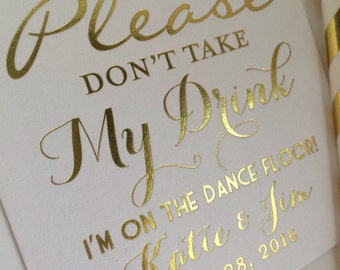 Please
DON'T TAKE
My Drink
I'M ON THE DANCE FLOOR!
Katie & Jim
28, 2016